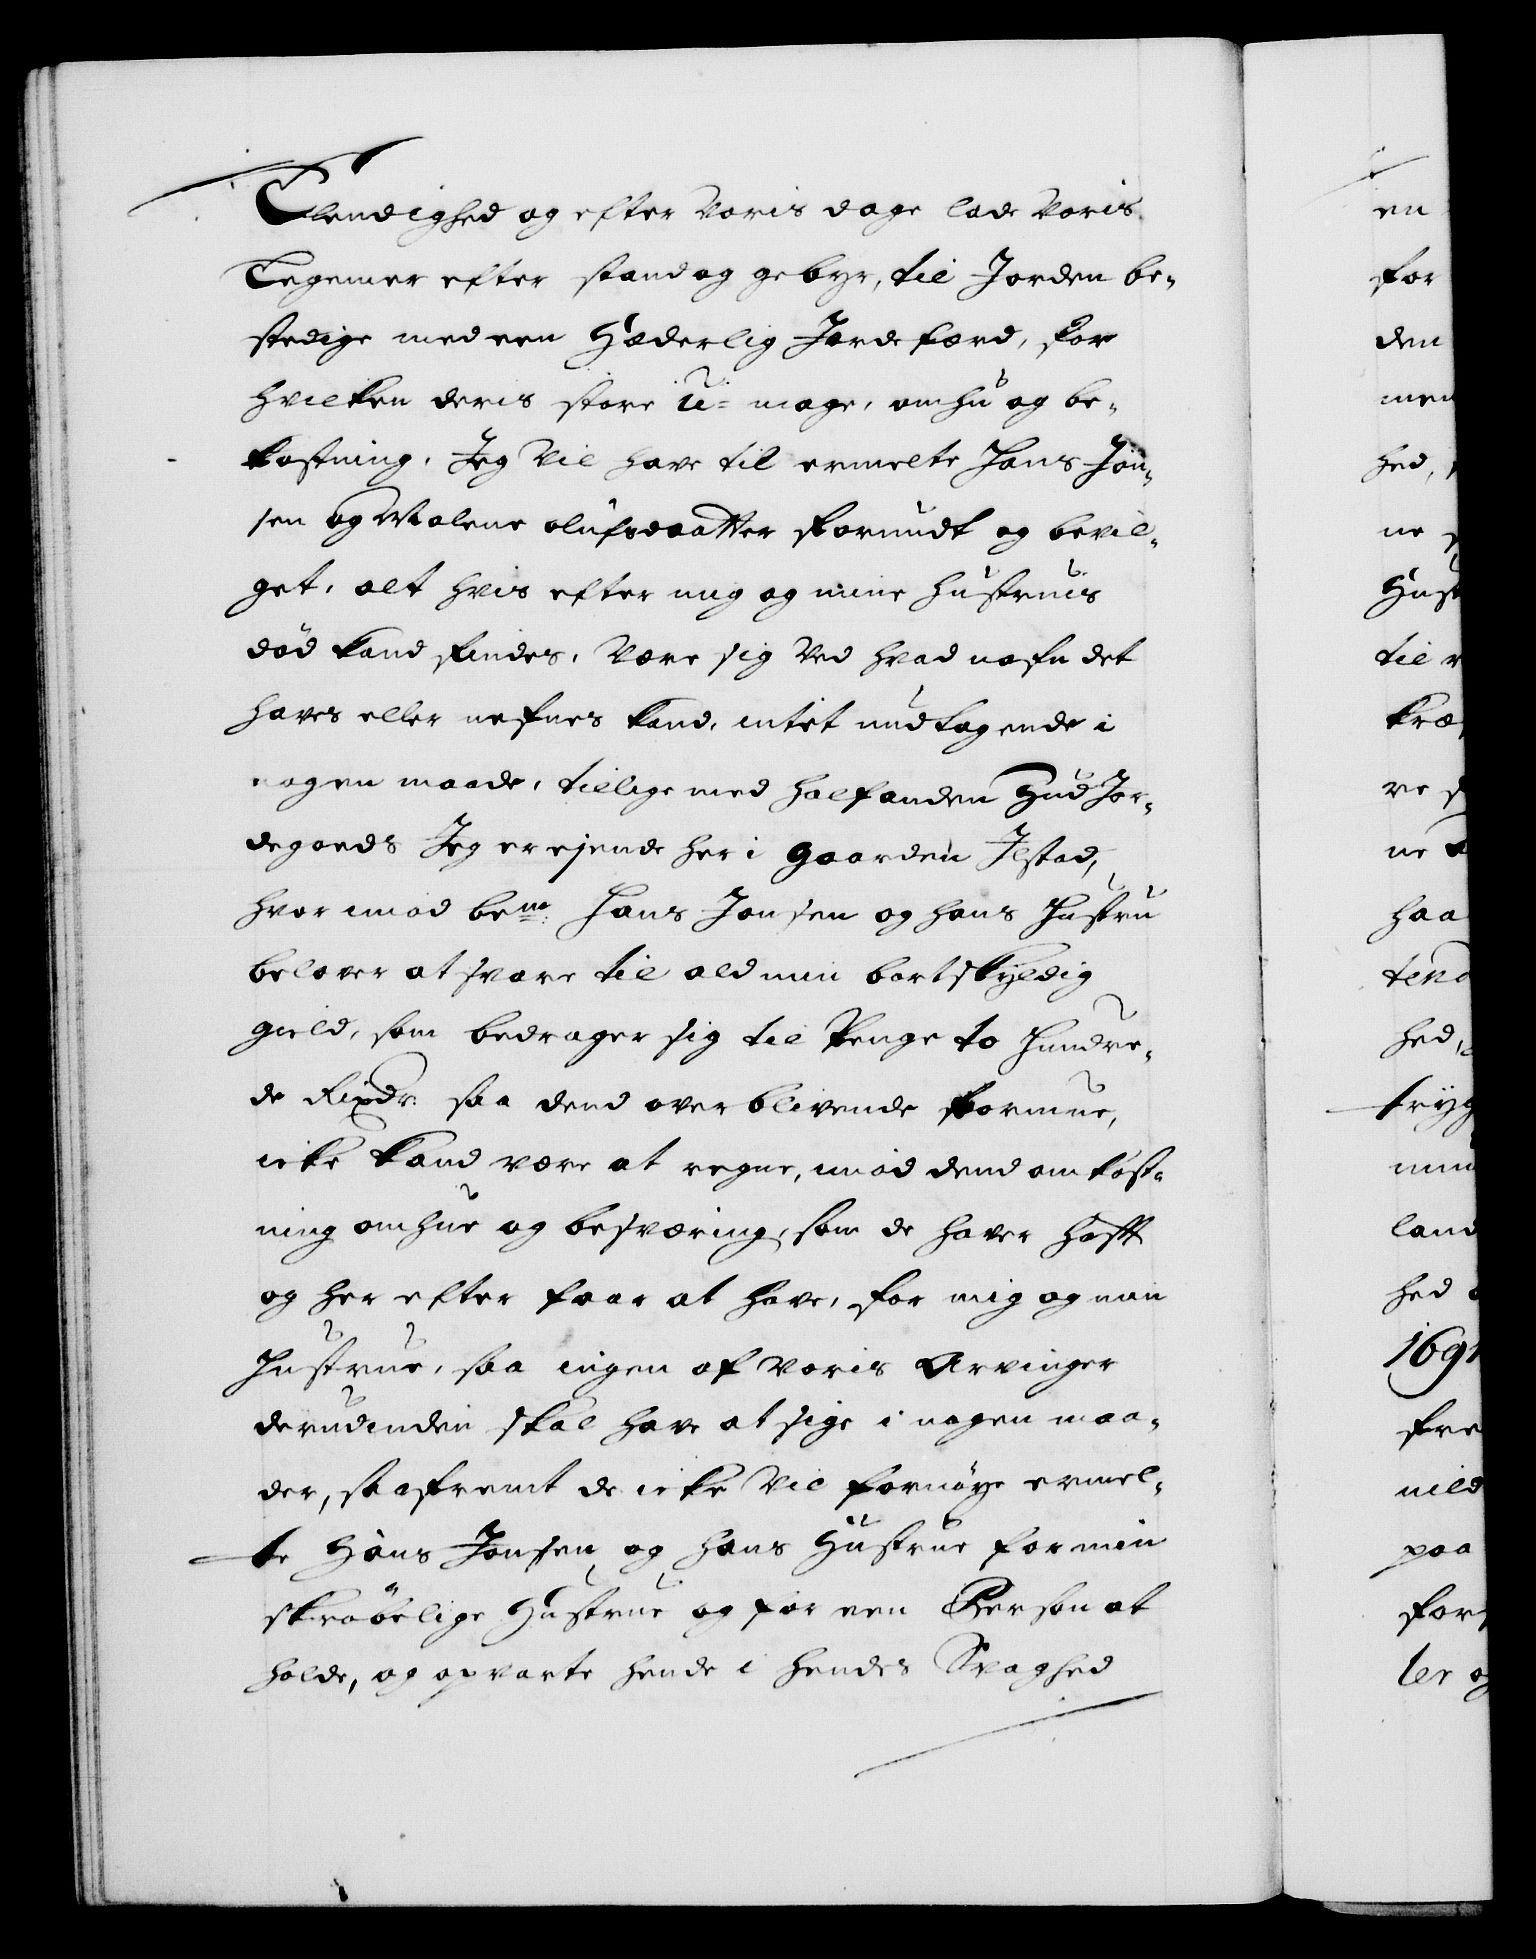 Elendighed og efter voris dage lade voris
Legemer efter stand og gebyr, til Jorden be-
stedige med een Hæderlig Jordefærd, for
hvilken deris store u-mage, omhu og be-
kostning. Jeg vil have til ermelte Hans Jon-
sen og Malene olufsdaatter forundt og bevil-
get, alt hvis efter mig og mine hustruis
død kand findes, være sig ved hvad nafn det
haves eller nefnes kand, intet undtagende i
nogen maade, tillige med halfanden Hud Jor-
degoeds Jeg er ejende her i gaarden Ilstad,
hvorimod bem.te Hans Jonsen og hans Hustru
belover at svare til ald min bortskyldig
gield, som bedrager sig til Penge to Hundre-
de Rixdr. saa dend overblivende formue,
icke kand være at regne, imod dend omkost-
ning omhue og besværing, som de haver hafft
og her efter faar at have, for mig og min
Hustrue, saa ingen af voris Arvinger
derudinden skal have at sige i nogen maa-
der, saafremt de icke vil fornøye ermel-
te Hans Jonsen og hans Hustrue for min
skrøbelige Hustrue og for een Person at
holde, og opvarte hende i hendes Svaghed
en
for
den
men
hed,
ne
Hust
til
kræ
ve
ne
haa
tend
hed,
tryg
min
land
hed
169
fre
vild
paa
for
ler og